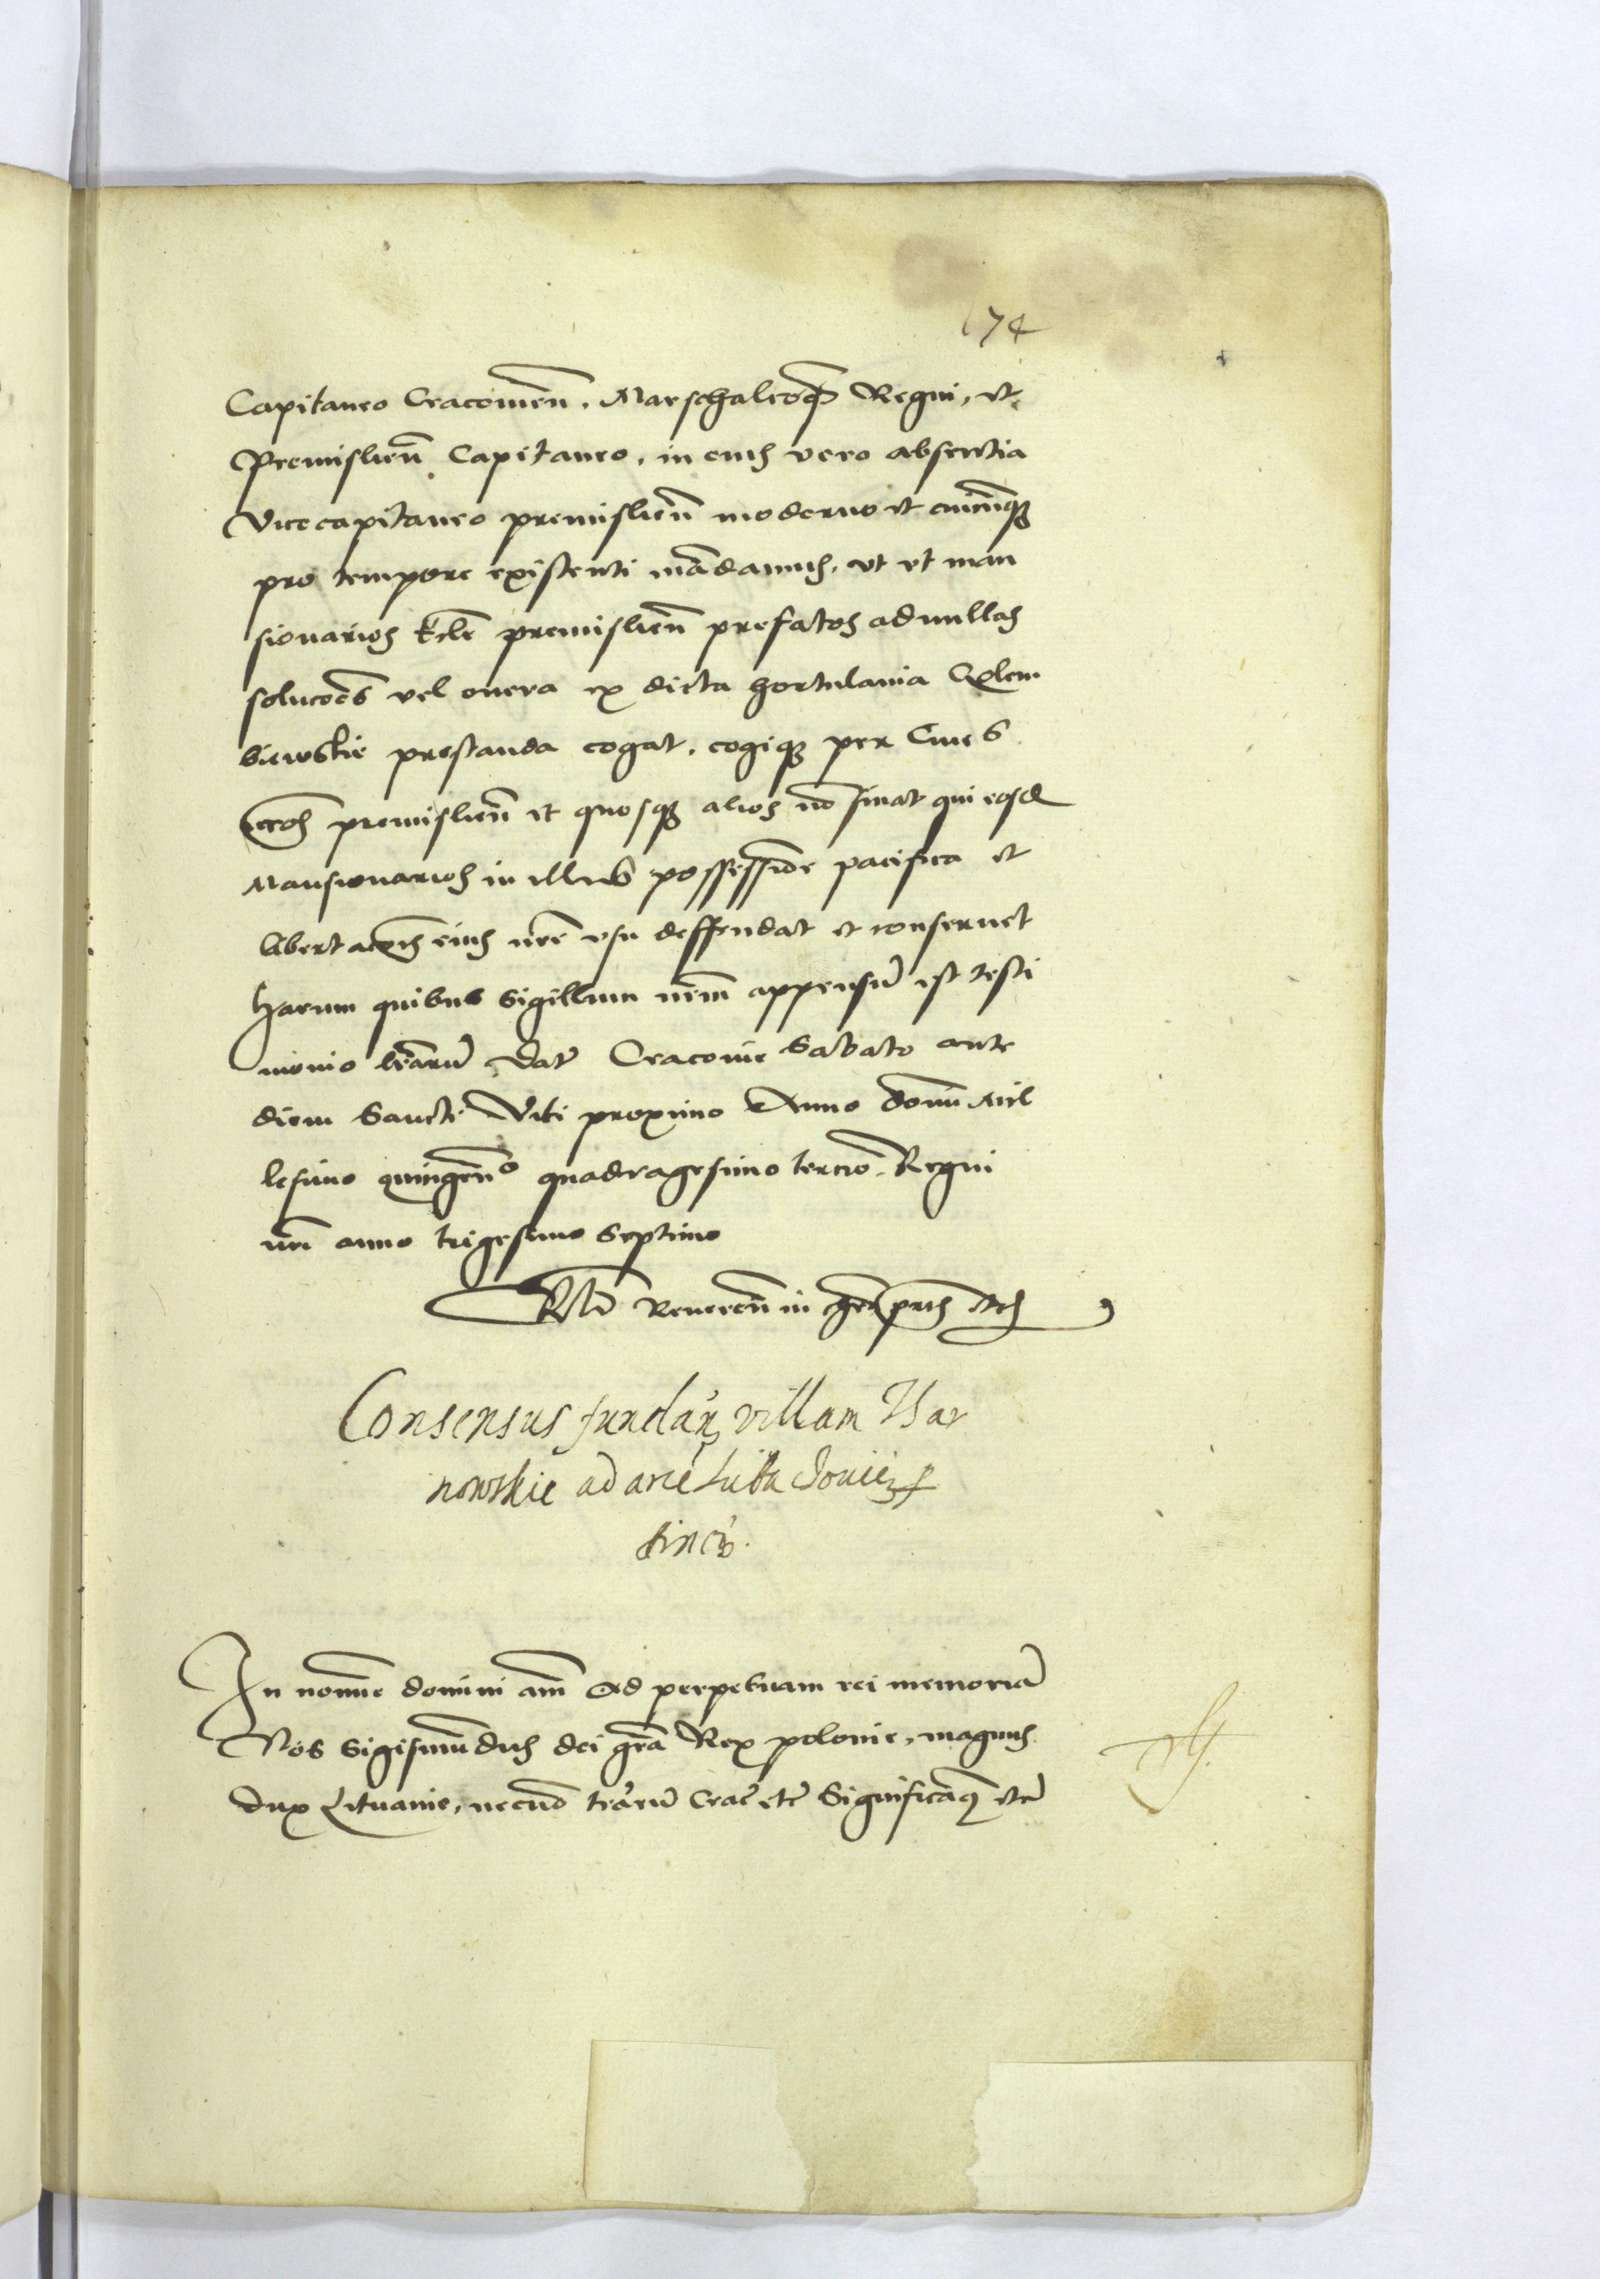 174
Capitaneo Cracovien̄. Marschalcoq̨ Regni, et
Premislien̄ Capitaneo, in eius vero absentia
Vicecapitaneo premislien̄ moderno et cuicūq̨
pro tempore existenti mādamus, ut ut man
sionarios Eccl̄e premislien̄ prefatos ad nullas
soluco̅es vel onera ex dicta hortulania Golem
biewskie prestanda cogat, cogiq̨ per Cives
premislien̄ et quosq̨ alios no̅ sinat qui eosd̄
Mansionarios in illius possessio̅e pacifica et
libertacōis eius nr̄e usu deffendat et conservet
Harum quibus Sigillum nr̄m appensu̅ est testi
monio lr̄aru̅ Dat̄ Cracovie Sabato ante
diem Sancti Viti proximo Anno domi̅ Mil
lesimo quingen̄o quadragesimo tercio. Regni
nr̄i anno trigesimo Septimo
R̄lo Reveren̄ in
Consensus fundan̄ villam Tar
nowskie ad arce̅ Luba
In nomi̅e domini am̄ Ad perpetuam rei memoria̅
Nos Sigismu̅dus dei gr̄a Rex polonie, magnus
dux Lituanie, necno̅ tr̄aru̅ Crac̄ etc̄ Significam̨ etc̄